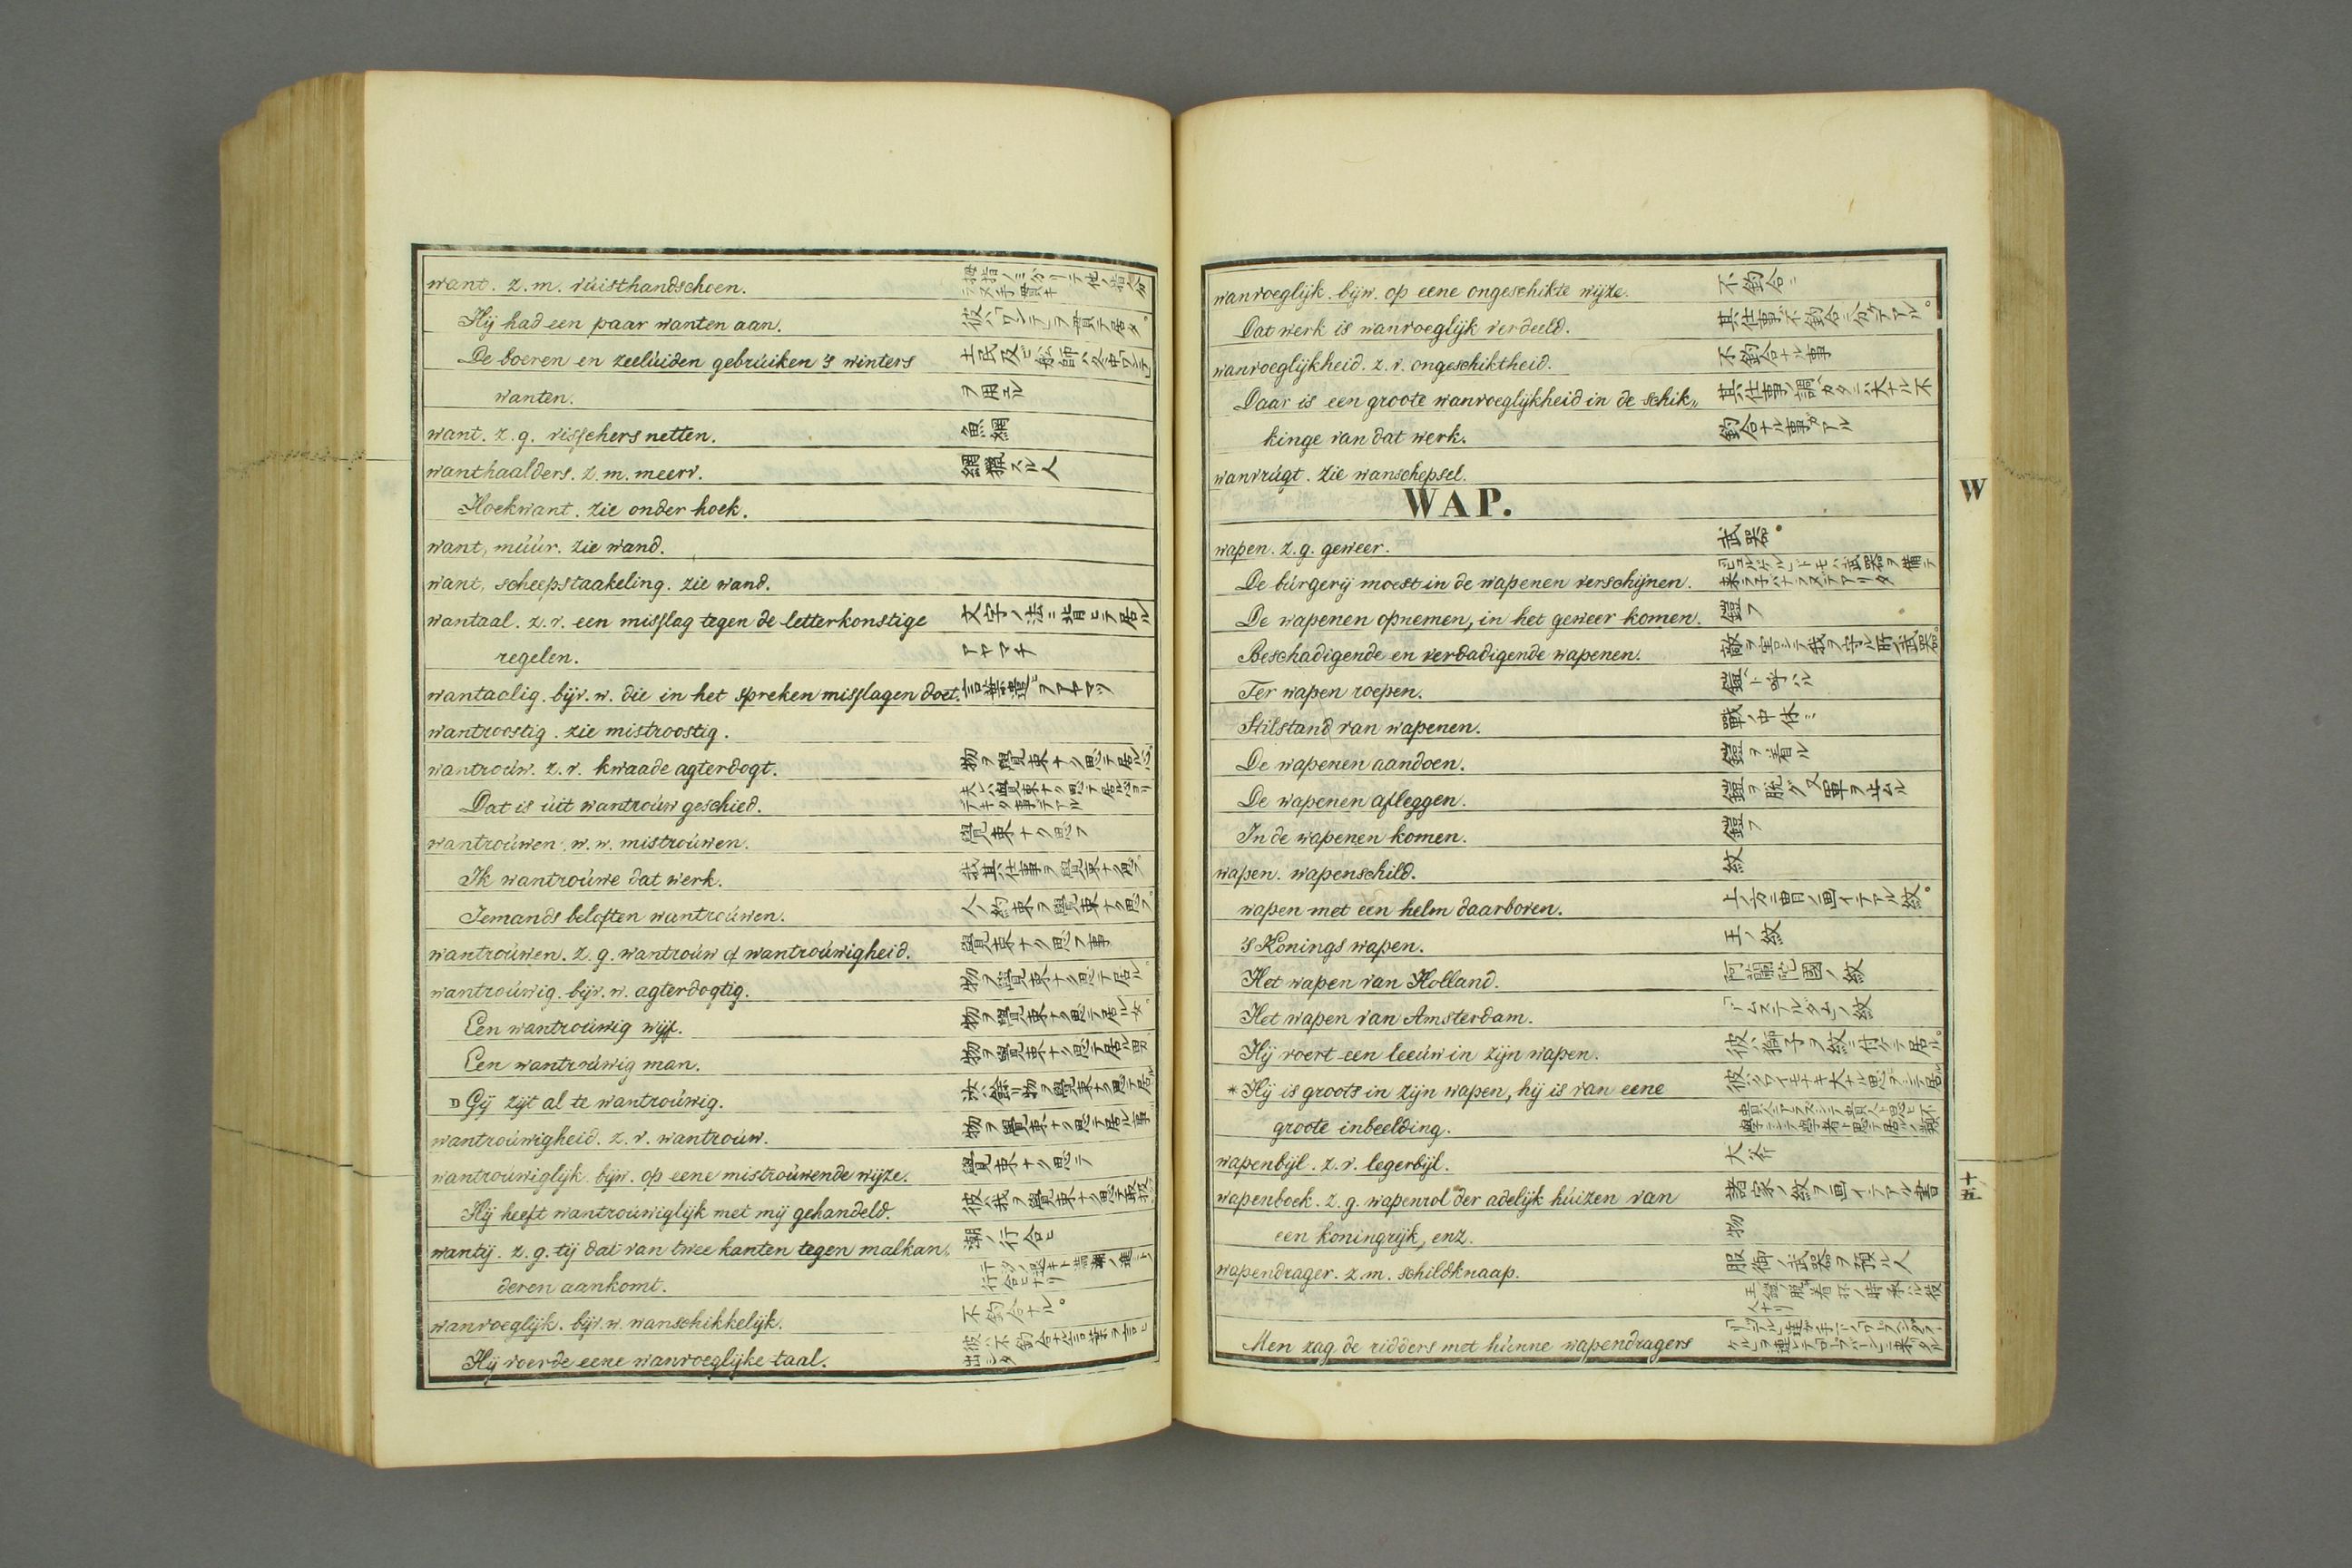 want. z.m. vúisthandschoen.
Hij had een paar wanten aan. 彼ハ「ワンテン」ヲ貫テ居タ。
De boeren en zeelúiden gebrúiken 's winters 土民及ビ船師ハ冬中「ワンテン」
wanten. ヲ用ユル
want. z.g. visschers netten. 魚網
wanthaalders. z.m. meerv. 網猟スル人
Hoekwant. zie onder hoek.
want, múúr. zie wand.
want, scheepstaakeling. zie wand.
wantaal. z.v. een misslag tegen de letterkonstige 文字ノ法ニ背ヒテ居ル
regelen. アヤマチ
wantaalig. bijv. w. die in het spreken misslagen doet. 言葉遣ヒヲアヤマツ
wantroostig. zie mistroostig.
wantroúw. z.v. kwaade agterdogt. 物ヲ覺束ナク思テ居ル心
Dat is úit wantroúw geschied. 夫レハ覺束ナク思テ居ル心ヨリ
デキタ事デアル
wantroúwen. w.w. mistroúwen. 覺束ナク思フ
Ik wantroúwe dat werk. 我其仕事ヲ覺束ナク思フ。
Iemands beloften wantroúwen. 人ノ約束ヲ覺束ナク思フ。
wantroúwen. z.g. wantroúw of wantroúwigheid. 覺束ナク思フ事
wantroúwig. bijv. w. agterdogtig. 物ヲ覺束ナク思テ居ル。
Een wantroúwig wijf. 物ヲ覺束ナク思テ居ル女。
Een wantroúwig man. 物ヲ覺束ナク思テ居ル男
D Gij zijt al te wantroúwig. 汝ハ餘リ物ヲ覺束ナク思テ居ル
wantroúwigheid. z.v. wantroúw. 物ヲ覺束ナク思テ居ル事
wantroúwiglijk. bijw. op eene mistroúwende wijze. 覺束ナク思テ
Hij heeft wantroúwiglijk met mij gehandeld. 彼ハ我ヲ覺束ナク思テ取扱
wantij. z.g. tij dat van twee kanten tegen malkan„ 潮ノ行合ヒ
deren aankomt.
wanvoeglijk. bijv. w. wanschikkelijk. 不釣合ナル。
Hij voerde eene wanvoeglijke taal. 彼ハ不釣合ナル言葉ヲ言ヒ
出シタ
wanvoeglijk. bijw. op eene ongeschikte wijze. 不釣合ニ
Dat werk is wanvoeglijk verdeeld. 其仕事ハ不釣合ニ分ケテアル。
wanvoeglijkheid. z.v. ongeschiktheid. 不釣合ナル事
Daar is een groote wanvoeglijkheid in de schik„ 其仕事ノ調ヘカタニハ大ナル不
kinge van dat werk. 釣合ナル事ガアル
wanvrúgt. zie wanschepsel.
WAP.
wapen. z.g. geweer. 武器。
De búrgerij moest in de wapenen verschijnen.
De wapenen opnemen, in het geweer komen. 鎧フ
Beschadigende en verdadigende wapenen. 敵ヲ害シテ我ヲ守ル所ノ武器。
Ter wapen roepen. 鎧ヘト呼ハル
Stilstand van wapenen. 戰ノ中休ミ
De wapenen aandoen. 鎧ヲ着ル
De wapenen afleggen. 鎧ヲ脱グ又軍ヲ止ムル
In de wapenen komen. 鎧フ
wapen. wapenschild. 紋
wapen met een helm daarboven. 上ノ方ニ冑ノ画イテアル紋。
's Konings wapen. 王ノ紋
Het wapen van Holland. 阿蘭陀國ノ紋
Het wapen van Amsterdam. 「アムステルダム」ノ紋
Hij voert een leeúw in zijn wapen. 彼ハ獅子ヲ紋ニ付ケテ居ル。
* Hij is groots in zijn wapen, hij is van eene
groote inbeelding.
wapenbijl. z.v. legerbijl. 大斧
wapenboek. z.g. wapenrol der adelijk húizen van 諸家ノ紋ヲ画イテアル書
een koningrijk, enz. 物
wapendrager. z.m. schildknaap. 服御ノ武器ヲ預ル人
Men zag de ridders met húnne wapendragers
W
十五